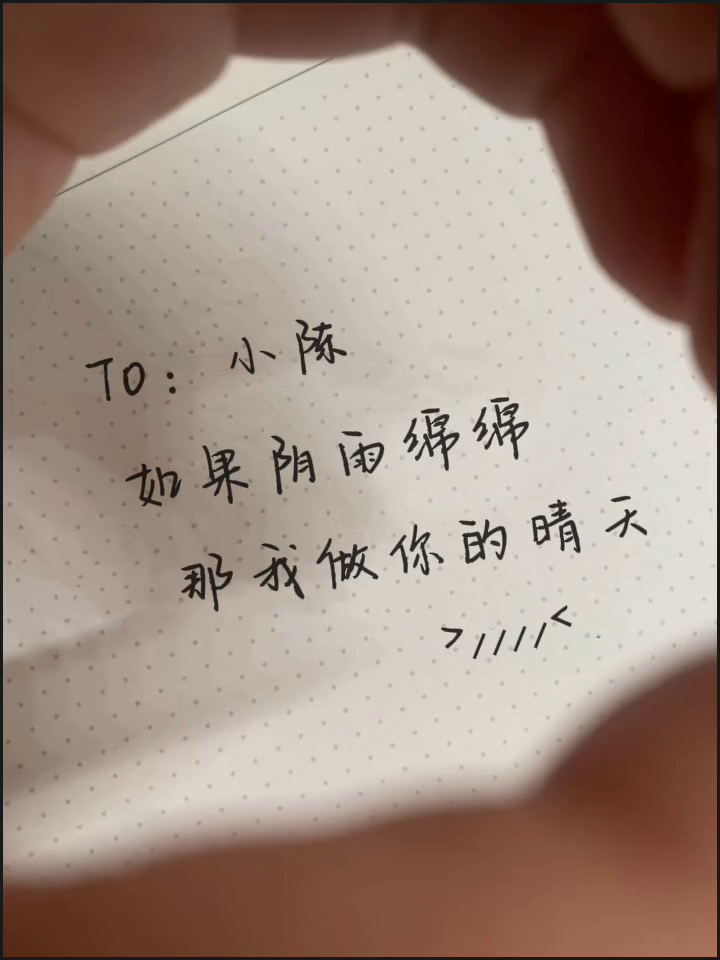 TO: 小陈
如果阴雨绵绵
那我做你的晴天
>////<